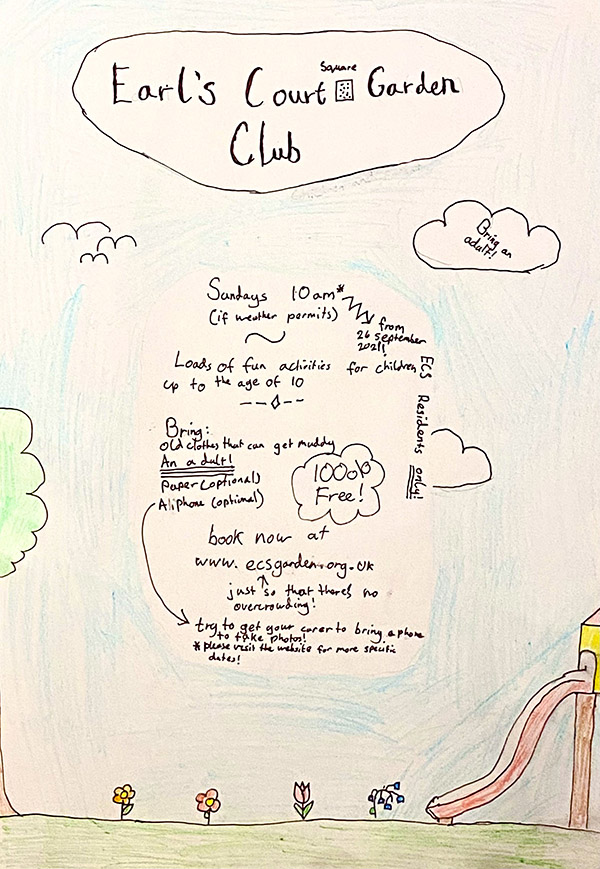 Square
Earl's Court Garden
Club
Bring an
adult!
Sundays 10am*
(if weather permits)
from
26 September
2021!
Loads of fun activities for children
up to the age of 10
ECS Residents only!
Bring:
Old clothes that can get muddy
An adult!
Paper (optional)
A iphone (optional)
100%
Free!
book now at
www.ecsgarden.org.uk
just so that there's no
overcrowding!
try to get your carer to bring a phone
to take photos!
*please visit the website for more specific
dates!